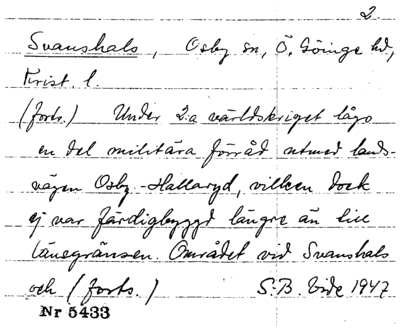 2.
Svanshals, Osby sn, Ö. Göinge hd,
Krist. l.
(forts.) Under 2:a världskriget lågo
en del militära förråd utmed lands-
vägen Osby-Hallaryd, vilken dock
ej var färdigbyggd längre än till
länsgränsen. Området vid Svanshals
och (forts.) S.B. Vide 1947
Nr 5433